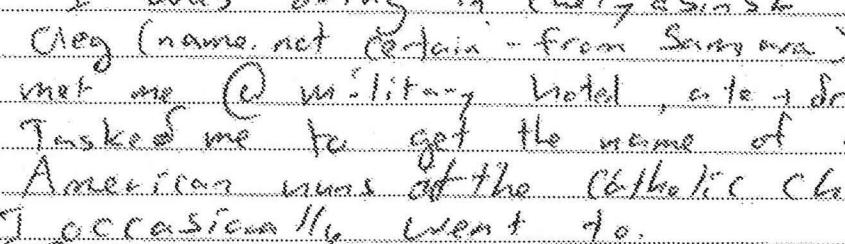 I was being in
Oleg (name not certain - from Samara)
met me @ military hotel, ate + dr
Tasked me to get the name of
American nuns at the Catholic Ch
I occasionally went to.